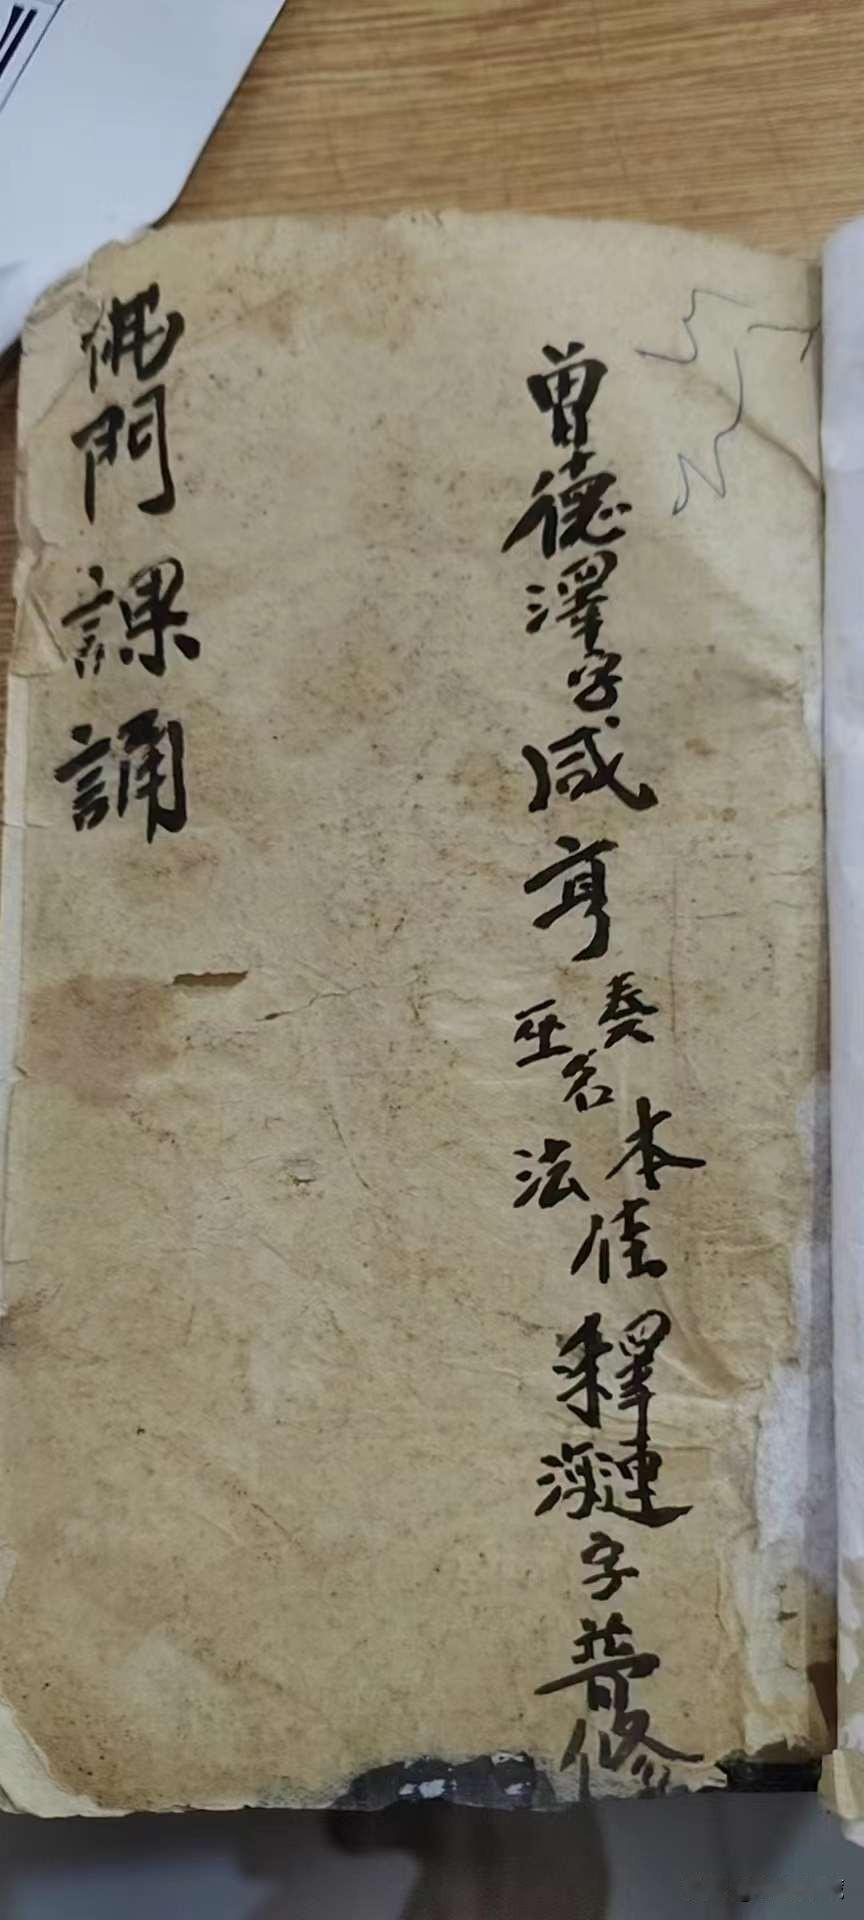 曾德澤字咸亨奏名本巫法佳釋海漣字普修
佛門課誦